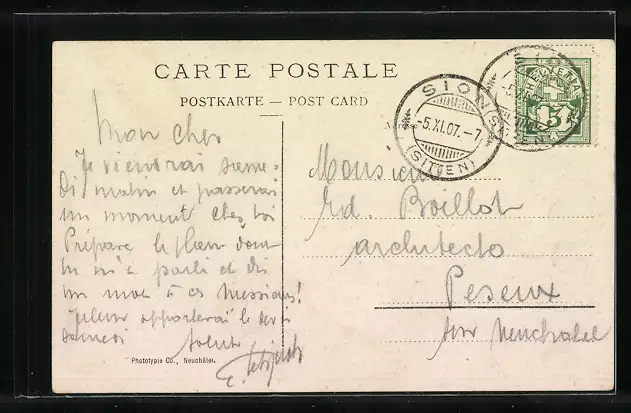 CARTE POSTALE
POSTKARTE — POST CARD
SION
-5.XI.07.-7
(SITTEN)
HELVETIA
5
Mon cher
Je viendrai same-
di matin et passerai
un moment chez toi
Prépare le plan dont
tu m'a parlé et dis
un mot à ces Messieurs!
apporterai le
samedi Salut
E.
Monsieur
Ed. Boillot
architecte
Peseux
sur Neuchatel
Phototypie Co., Neuchâtel.